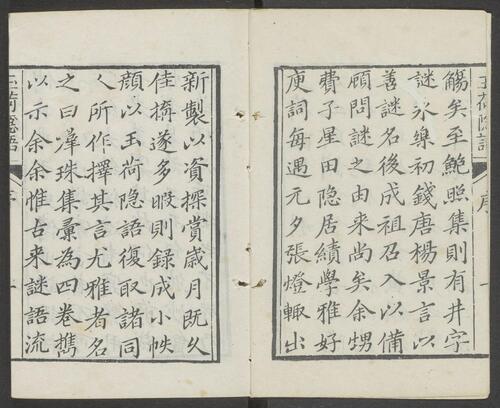 觴矣至鮑照集則有井字
謎永樂初錢唐楊景言以
善謎名後成祖召入以備
顧問謎之由來尚矣余甥
費子星田隐居績學雅好
庾詞每遇元夕張燈輙出
新製以資探賞歳月既久
佳搆遂多暇則録成小帙
顔以玉荷隐語復取諸同
人所作擇其言尤雅者名
之曰𭰖珠集彙為四卷携
以示余余惟古来謎語流
玉荷隐語
序
一